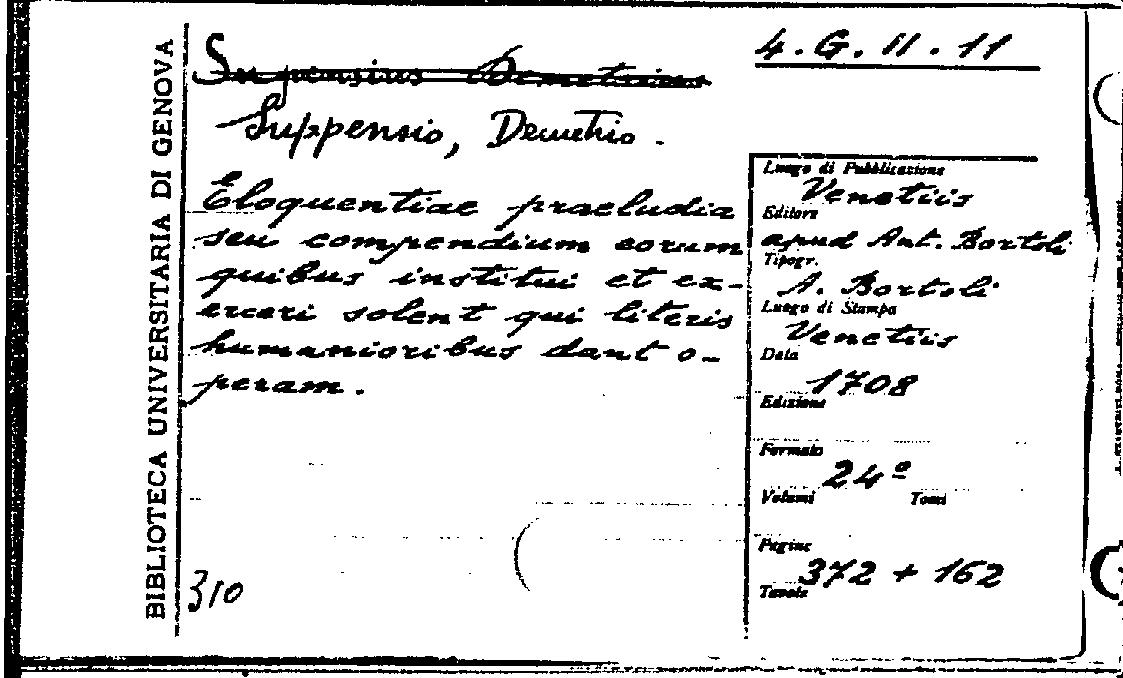 BIBLIOTECA UNIVERSITARIA DI GENOVA
Supensius Demetrius
4. G. II. 11
Suppensio, Demetrio.
Eloquentiae praeludia
seu compendium eorum
quibus institui et ex-
erceri solent qui literis
humanioribus dant o-
peram.
310
Luogo di Pubblicazione
Venetiis
Editore
apud Ant. Bortoli
Tipogr.
A. Bortoli
Luogo di Stampa
Venetiis
Data
1708
Edizione
Formato
24º
Volumi Tomi
Pagine
372 + 162
Tavole